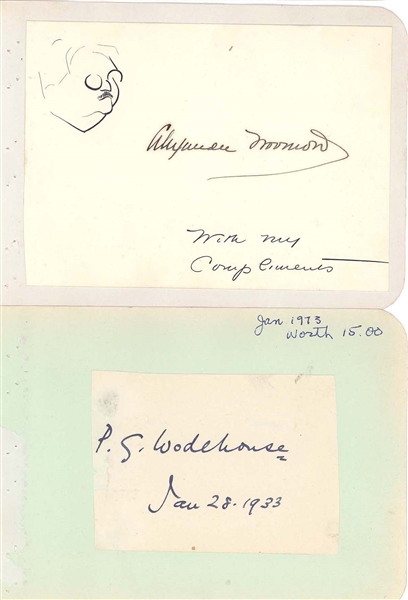 Alexander
With my
Compliments
Jan 1973
Worth 15.00
P. G. Wodehouse
Jan 28-1933